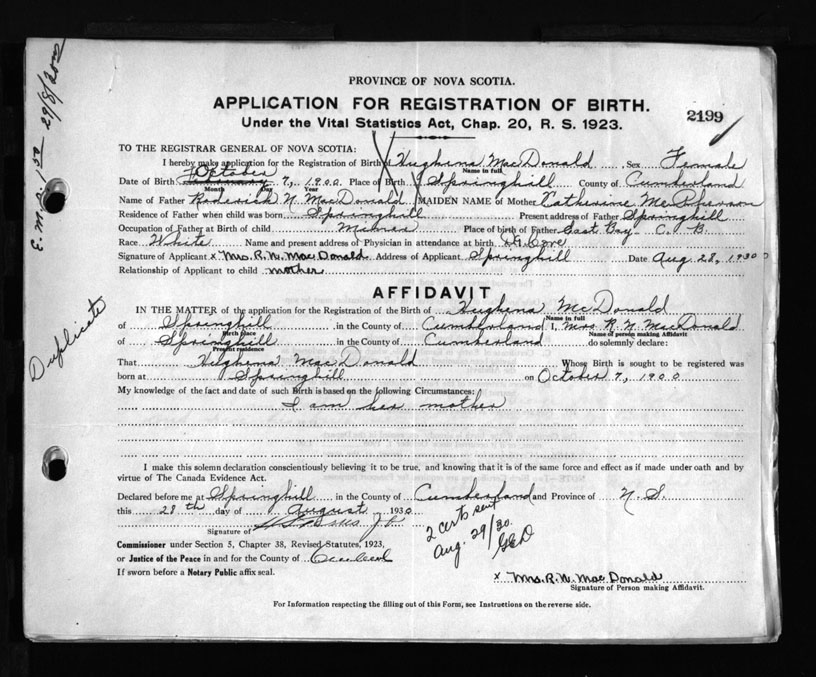 PROVINCE OF NOVA SCOTIA.
APPLICATION FOR REGISTRATION OF BIRTH.
2199
Under the Vital Statistics Act, Chap. 20, R. S. 1923.
TO THE REGISTRAR GENERAL OF NOVA SCOTIA:
I hereby make application for the Registration of Birth of Hughena MacDonald Sex Female
Name in full
October
Date of Birth February 7, 1900 Place of Birth Springhill County of Cumberland
Month Day Year
Name of Father Roderick N. MacDonald MAIDEN NAME of Mother Catherine McPherson
Residence of Father when child was born Springhill Present address of Father Springhill
Occupation of Father at Birth of child Miner Place of birth of Father East Bay C. B.
Race White Name and present address of Physician in attendance at birth Cove
Signature of Applicant x Mrs. R. N. MacDonald Address of Applicant Springhill Date Aug 28, 1930
Relationship of Applicant to child mother
AFFIDAVIT
IN THE MATTER of the application for the Registration of the Birth of Hughena McDonald
Name in full
of Springhill in the County of Cumberland I, Mrs R. N. MacDonald
Birth place Name of person making Affidavit
of Springhill in the County of Cumberland do solemnly declare:
Present residence
That Hughena MacDonald Whose Birth is sought to be registered was
born at Springhill on October 7, 1900
My knowledge of the fact and date of such Birth is based on the following Circumstances:
I am her mother
I make this solemn declaration conscientiously believing it to be true, and knowing that it is of the same force and effect as if made under oath and by
virtue of The Canada Evidence Act.
Declared before me at Springhill in the County of Cumberland and Province of N. S.
this 28th day of August 1930
Signature of
Commissioner under Section 5, Chapter 38, Revised Statutes, 1923,
or Justice of the Peace in and for the County of
If sworn before a Notary Public affix seal.
2 certs sent
Aug. 29/30.
GED
x Mrs. R. N. MacDonald
Signature of Person making Affidavit.
For Information respecting the filling out of this Form, see Instructions on the reverse side.
Duplicate